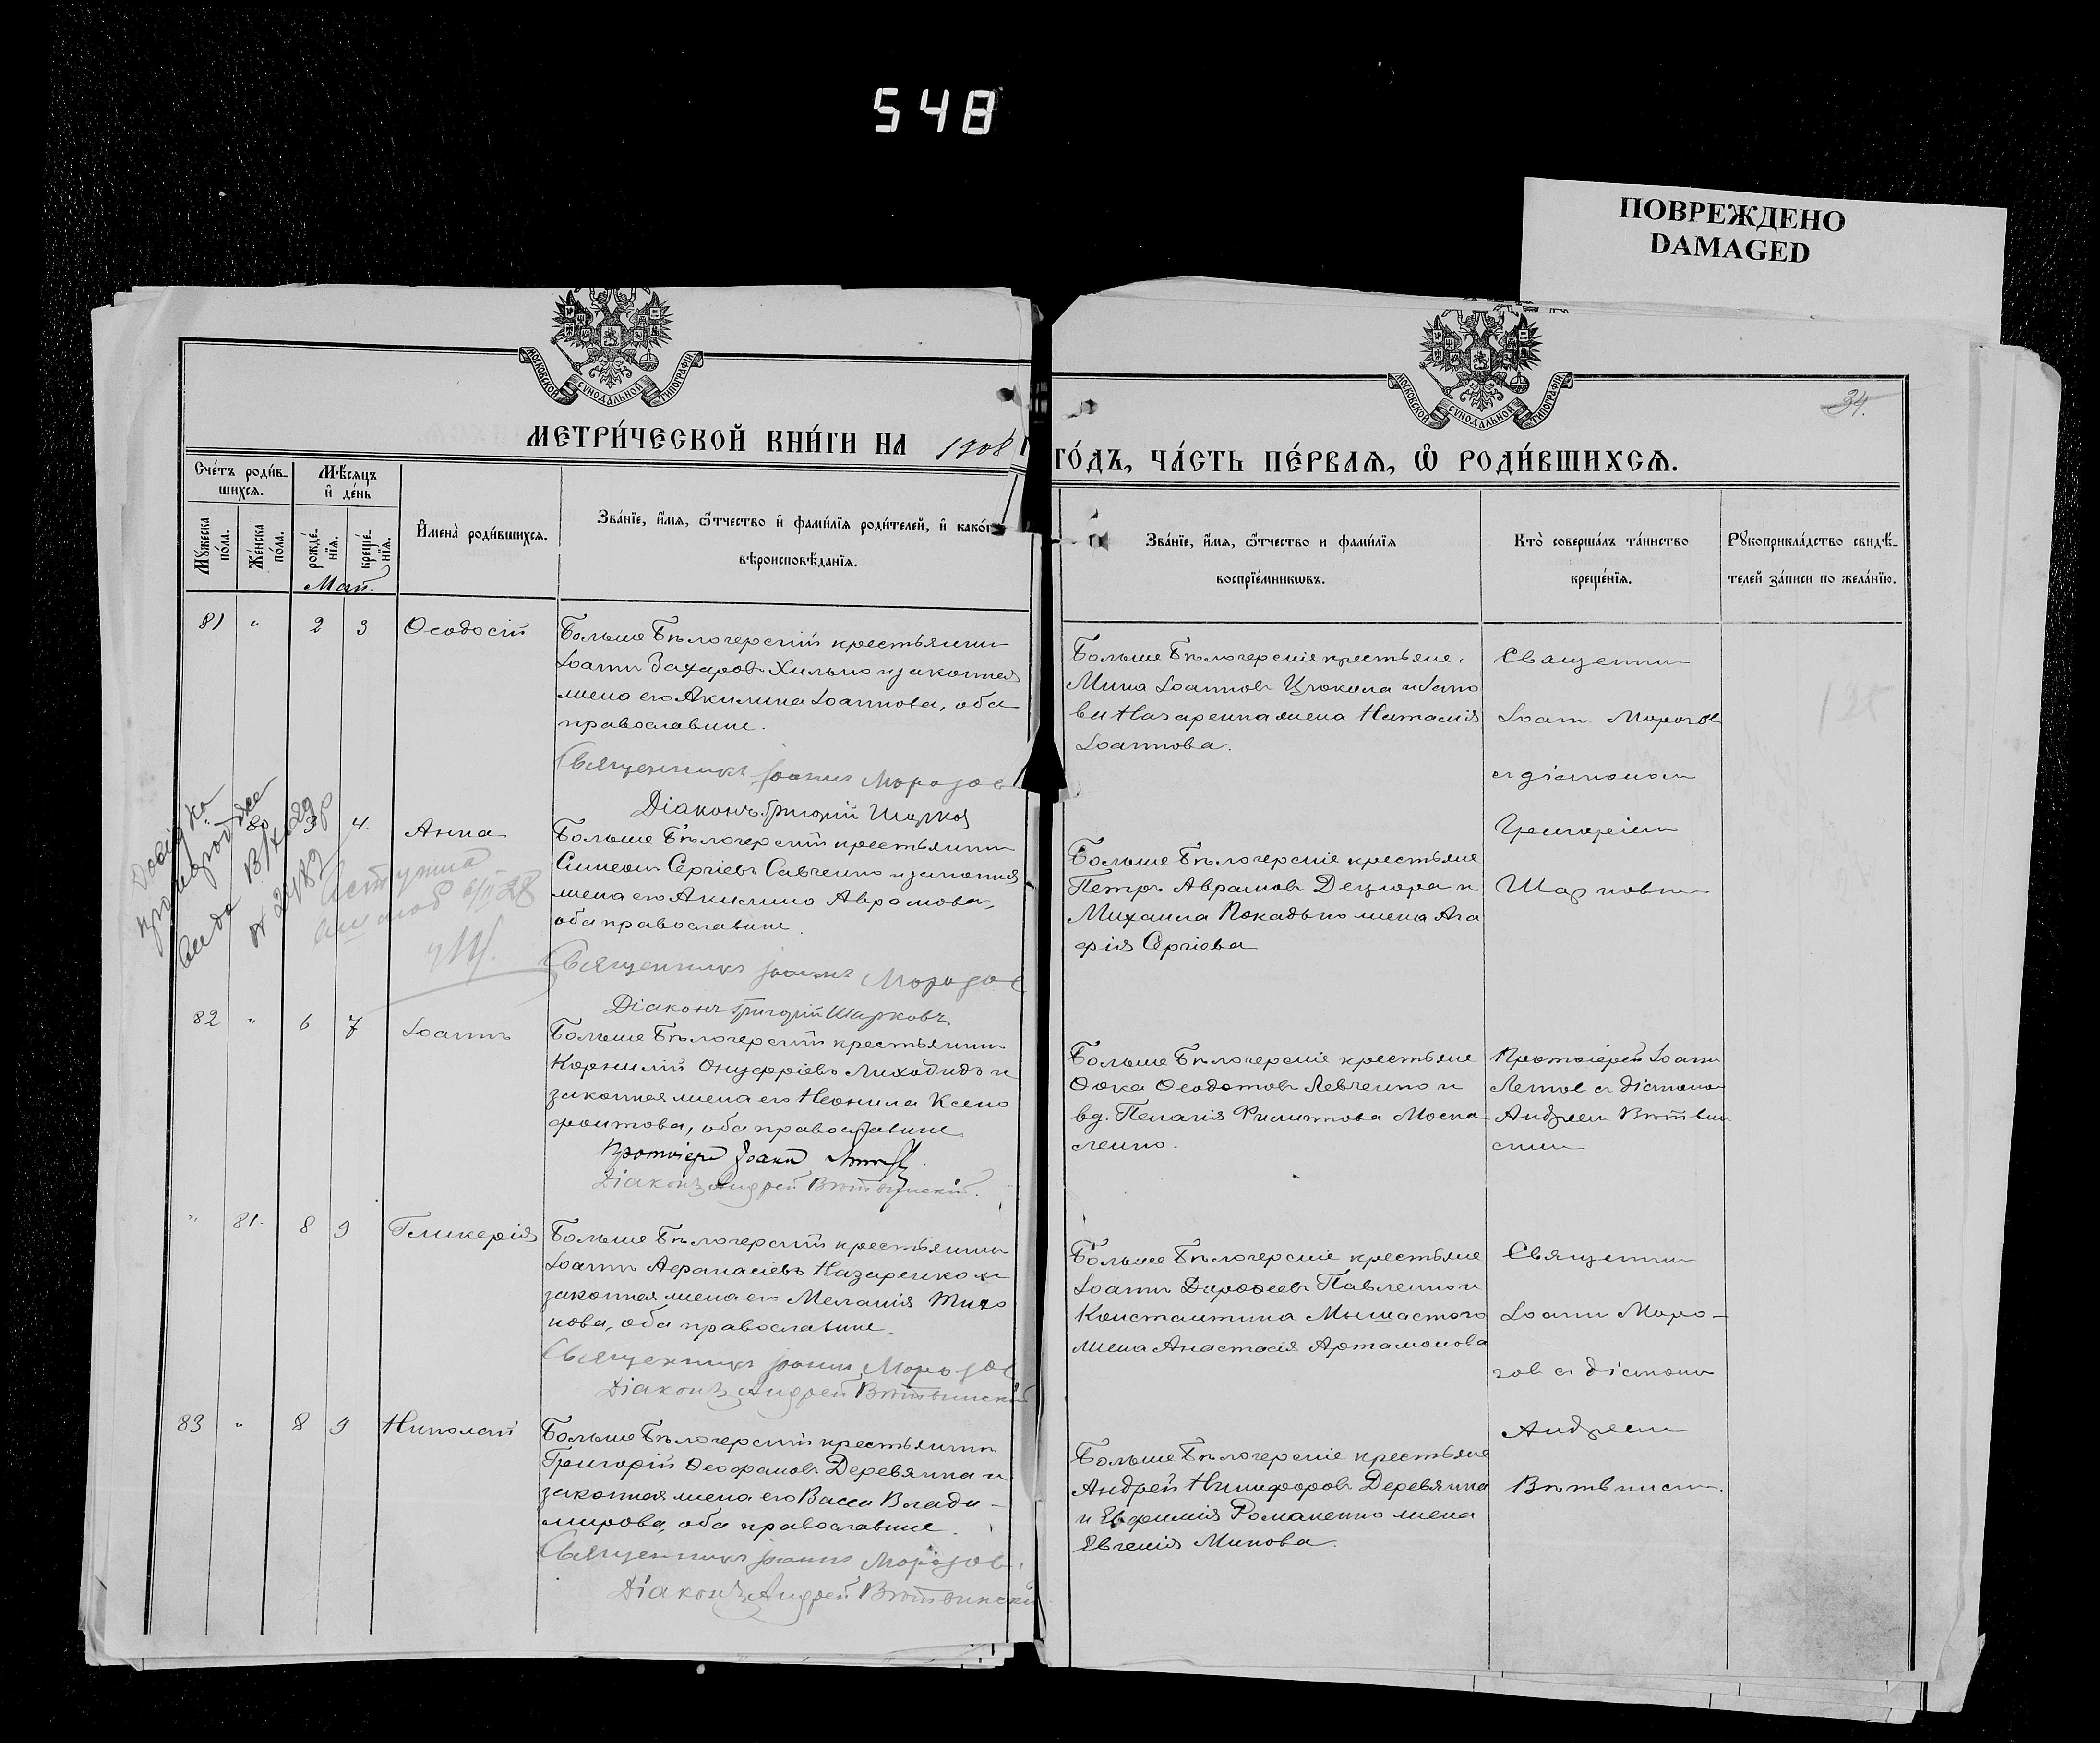 548
ПОВРЕЖДЕНО
DAMAGED
МОСКОВСКОЙ СѴНОДАЛЬНОЙ ТИПОГРАФІИ
МОСКОВСКОЙ СѴНОДАЛЬНОЙ ТИПОГРАФІИ
34.
МЕТРИ́ЧЕСКОЙ КНИ́ГИ НА 1908
ГО́ДЪ, ЧА́СТЬ ПЕ́РВАЯ, Ѡ҆ РОДИ́ВШИХСЯ.
Сче́тъ роди́в-
шихся.
Мѣ́сяцъ
и҆ де́нь
Мꙋ́жеска
по́ла.
Же́нска
по́ла.
рожде́-
нїя.
креще́-
нїя.
Май.
И҆мена̀ роди́вшихся.
Зва́нїе, и҆́мя, ѻ҆́тчество и҆ фами́лїя роди́телей, и҆ како́гѡ
вѣроисповѣ́данїя.
Зва́нїе, и҆́мя, ѻ҆́тчество и фами́лїя
воспрїе́мникѡвъ.
Кто̀ соверша́лъ та́инство
креще́нїя.
Рꙋкоприкла́дство свидѣ́-
телей за́писи по жела́нїю.
81 " 2 3 Ѳеодосій
Больше Бѣлозерскій крестьянинъ
Іоаннъ Захаровъ Хилько и законная
жена его Акилина Іоаннова, оба
православные.
Священникъ Іоаннъ Морозов
Діаконъ Григорій Шарков
Больше Бѣлозерскіе крестьяне
Мина Іоанновъ Цюкала и
Назаренка жена Наталія
Іоаннова.
Священник
Іоанн Морозов
с діаконом
Григоріем
Шарковым
" 80 3 4. Анна
Больше Бѣлозерскій крестьянинъ
Симеонъ Сергіевъ Савченко и законная
жена его Акилина Аврамова,
оба православные.
Священникъ Іоаннъ Морозов
Діаконъ Григорій Шарковъ
Больше Бѣлозерскіе крестьяне
Петръ Аврамовъ Децюра и
Михаила Покадько жена Ага
фія Сергіева
82 " 6 7 Іоаннъ
Больше Бѣлозерскій крестьянинъ
Корнилій Онуфріевъ Лиходидъ и
законная жена его Неонила Ксено
фонтова, оба православные
Протоіерей Іоанн
Діаконъ Андрей Вѣтвинскій.
Больше Бѣлозерскіе крестьяне
Ѳока Ѳеодотовъ Левченко и
вд. Пелагія Филиппова Моска
ленко.
Протоіерей Іоанн
с діаконо
Андреем Вѣтвин
ским
" 81. 8 9 Гликерія
Больше Бѣлозерскій крестьянинъ
Іоаннъ Аѳанасіевъ Назаренко и
законная жена его Меланія Тихо
нова, оба православные.
Священникъ Іоаннъ Морозов
Діаконъ Андрей Вѣтвински
Больше Бѣлозерскіе крестьяне
Іоаннъ Дороѳеевъ Павленко и
Константина Мышастого
жена Анастасія Артамонова
Священник
Іоанн Моро-
зов с діаконом
Андреем
Вѣтвинским.
83 " 8 9 Николай
Больше Бѣлозерскій крестьянинъ
Григорій Ѳеофановъ Деревянка и
законная жена его Васса Влади-
мирова, оба православные.
Священникъ Іоаннъ Морозов
Діаконъ Андрей Вѣтвински
Больше Бѣлозерскіе крестьяне
Андрей Никифоровъ Деревянка
и Евфимія Романенко жена
Евгенія Минова.